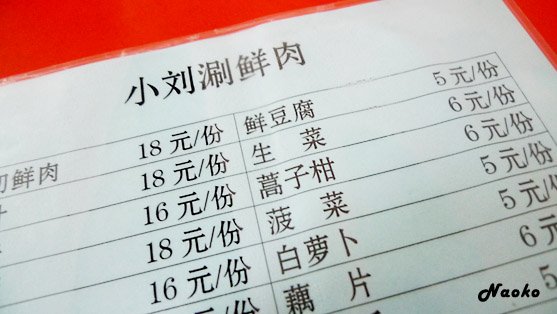 小刘涮鲜肉
鲜肉 18元/份 鲜豆腐 5元/份
18元/份 生菜 6元/份
16元/份 蒿子柑 6元/份
18元/份 菠菜 5元/份
16元/份 白萝卜 5元/份
藕片 6元
Naoko